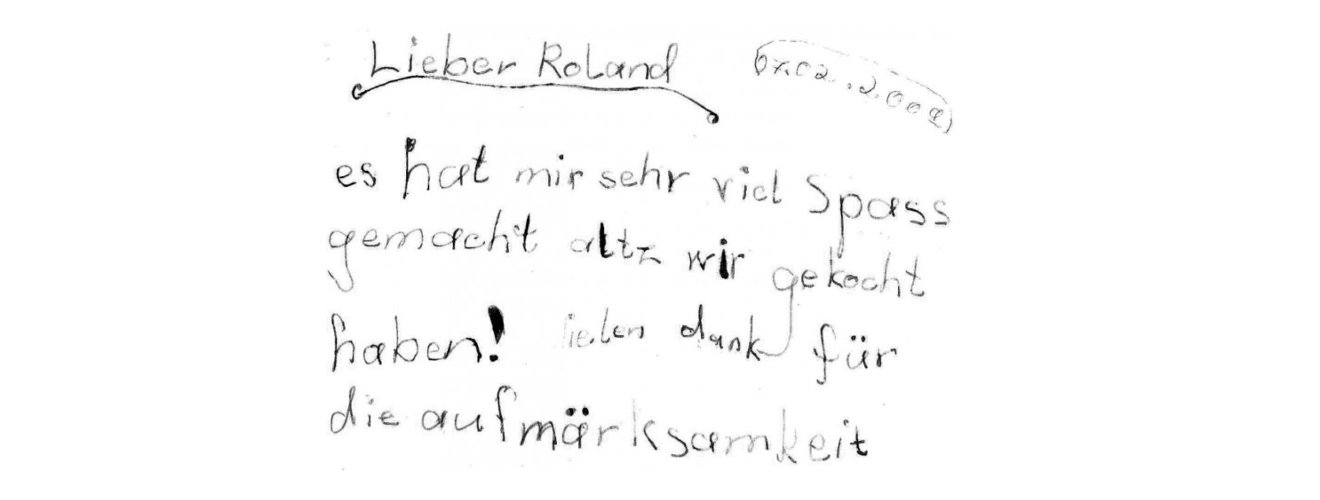 Lieber Roland
es hat mir sehr viel Spass
gemacht altz wir gekocht
haben! dank für
die aufmärksamkeit